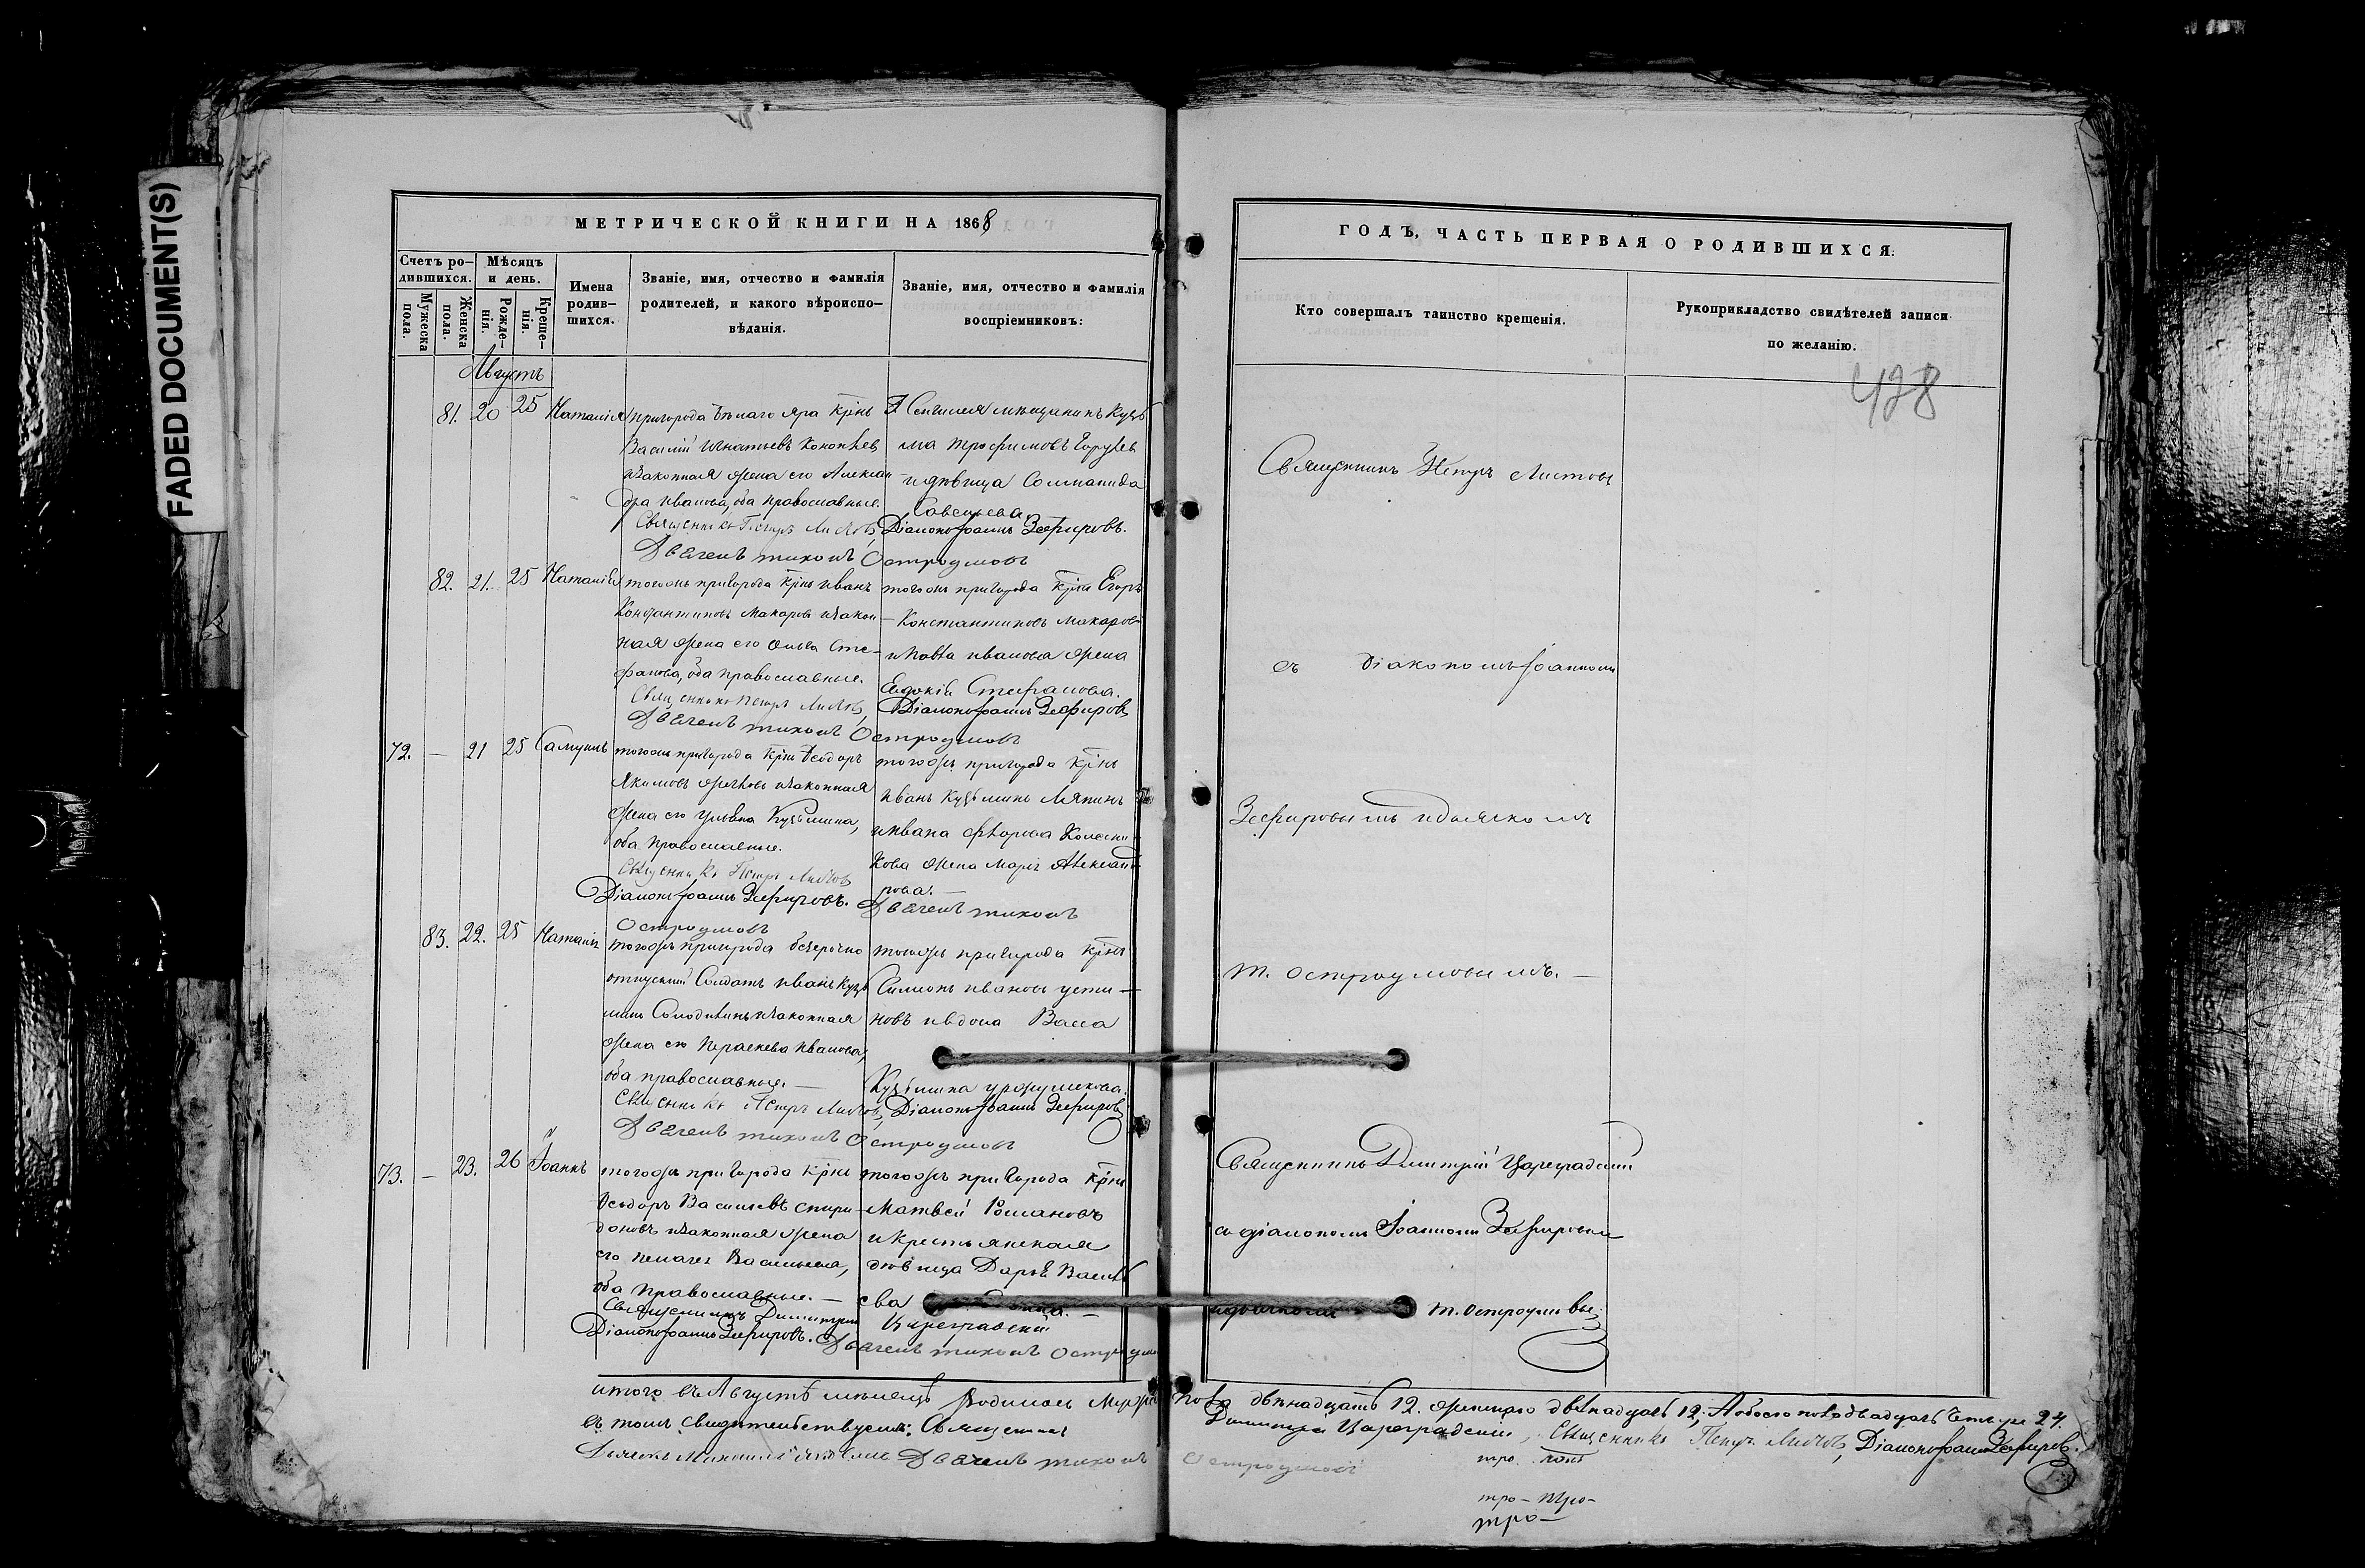 FADED DOCUMENT(S)
МЕТРИЧЕСКОЙ КНИГИ НА 1868
Счетъ ро-
дившихся.
Мужеска пола.
Женска пола.
Мѣсяцъ
и день.
Рожде-
нія.
Креще-
нія.
Имена
родив-
шихся.
Званіе, имя, отчество и фамилія
родителей, и какого вѣроиспо-
вѣданія.
Званіе, имя, отчество и фамилія
воспріемниковъ:
Августъ
81. 20 25 Наталія
пригорода Бѣлаго Яра крнъ
Василій Игнатьевъ
и законная жена его Алексан-
дра Иванова, оба православные.
Священникъ Петръ Листовъ
г. Сенгилея мѣщанинъ Кузь
ма Трофимовъ
и дѣвица Соломанида
Савельева.
Діаконъ Іоаннъ Зефировъ.
Дьячекъ Тихонъ Остроумовъ
82. 21. 25 Наталія
тогожъ пригорода крнъ Иванъ
Константиновъ Макаровъ и закон-
ная жена его Ольга Сте-
фанова, оба православные.
Священникъ Петръ Листовъ
тогожъ пригорода крнъ Егоръ
Константиновъ Макаровъ
и Иванова жена
Евдокія Стефанова.
Діаконъ Іоаннъ Зефировъ
Дьячекъ Тихонъ Остроумовъ
72. — 21 25 Самуилъ
тогожъ пригорода крнъ Ѳеодоръ
Якимовъ и законная
жена его Ульяна Кузьмина,
оба православные.
Священникъ Петръ Листовъ
Діаконъ Іоаннъ Зефировъ.
тогожъ пригорода крнъ
Иванъ Кузьминъ Ляпинъ
и Ивана Колесни-
кова жена Марія Александ
рова. —
Дьячекъ Тихонъ
Остроумовъ
83. 22. 25 Наталія
тогожъ пригорода безсрочно
отпускный Солдатъ Иванъ Кузь
минъ и законная
жена его Параскева Иванова,
оба православные. —
Священникъ Петръ Листовъ
тогожъ пригорода крнъ
Симеонъ Ивановъ Усти-
новъ и вдова Васса
Кузьмина
Діаконъ Іоаннъ Зефировъ
Дьячекъ Тихонъ Остроумовъ
73. — 23. 26 Іоаннъ
тогожъ пригорода крнъ
Ѳеодоръ Васильевъ Спири-
доновъ и законная жена
его Пелагея Васильева,
оба православные. —
Священникъ Димитрій
Діаконъ Іоаннъ Зефировъ.
тогожъ пригорода крнъ
Матвей Романовъ
и крестьянская
дѣвица Дарья Василь
ева
Цареградскій
Дьячекъ Тихонъ Остроумовъ
итого въ Августѣ мѣсяцѣ родилось Мужеска
въ томъ свидѣтельствуемъ: Священникъ
Дьячекъ Тихонъ
ГОДЪ, ЧАСТЬ ПЕРВАЯ О РОДИВШИХСЯ.
Кто совершалъ таинство крещенія.
Рукоприкладство свидѣтелей записи
по желанію.
428
Священникъ Петръ Листовъ
съ Діакономъ Іоанномъ
Зефировымъ и дьячкомъ
Т. Остроумовымъ. —
Священникъ Димитрій Цареградскій
съ діакономъ Іоанномъ Зефировымъ
и дьячкомъ Т. Остроумовы
пола двѣнадцать 12. женскаго двѣнадцать 12, А обоего пола двадцать четыре 24.
Димитрій Цареградскій, Священникъ Петръ Листовъ, Діаконъ Іоаннъ Зефировъ.
Остроумовъ